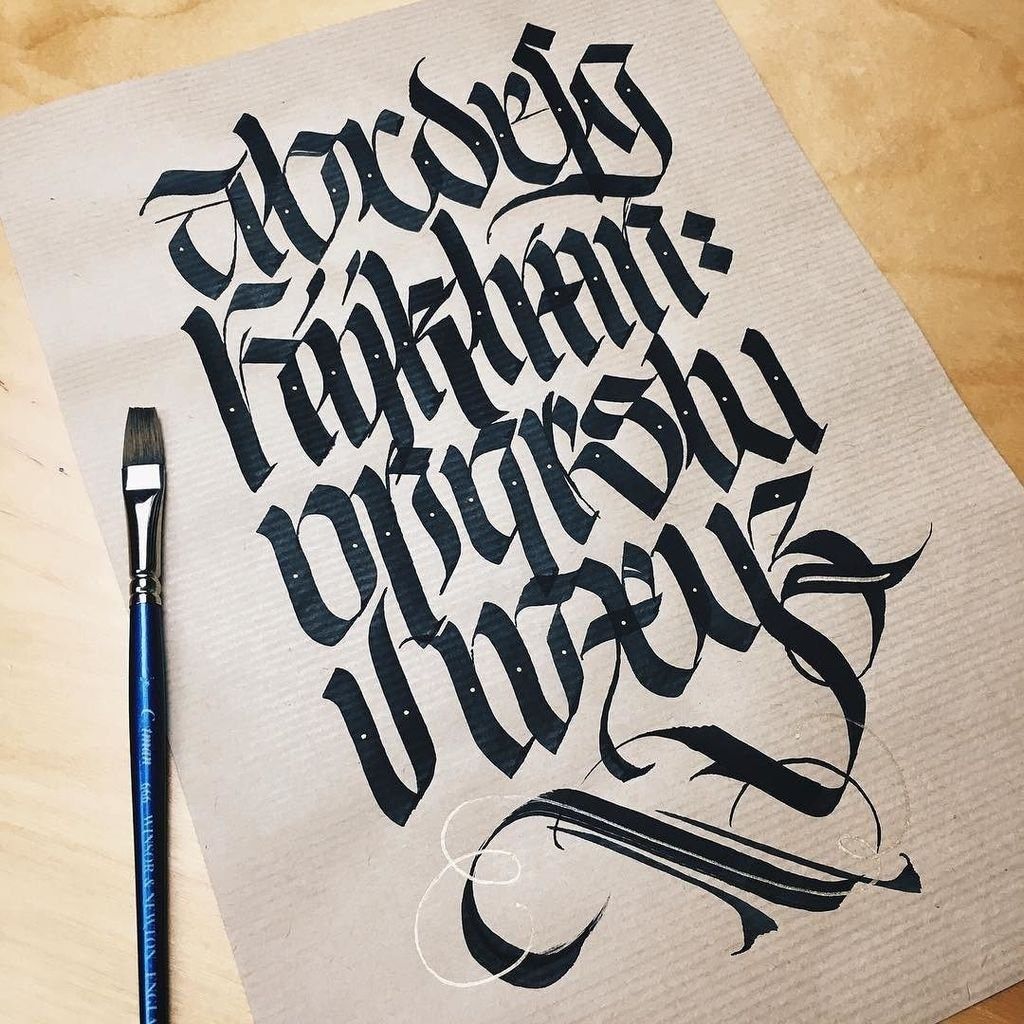 abcdefg
hijklmn:
opqrstu
vwxyz
Cotman 666 WINSOR & NEWTON. ENGLA